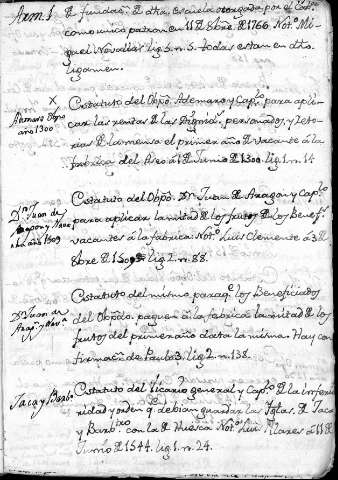 Arm. 1 de fundaz.n de dha. Escuela otorgada por el Cav.o
como unico patron en 11 de 8bre. de 1766 Not.o Mi
guel Novallas lig. 5. n. 5. todas estan en dho.
ligamen.
X
Ademaro Obpo año 1300
Estatuto del Obpo. Ademaro y Cap.lo para apli
car las rentas de las Dignid.s personados, y reto
rias de la mensa el primer año de vacante á la
fabrica del Aseo á 1 de Junio de 1300. lig. 1. n. 14
D.n Juan de Aragon y Nava
rra año 1509
Estatuto del Obpo. D.n Juan de Aragon y Cap.lo
para aplicar la mitad de los frutos de los Benef.s
vacantes á la fabrica: Not.o Luis Clemente á 3 de
8bre de 1509. lig. 2. n. 88.
D.n Juan de Arag.n y Nav.a
Estatuto del mismo, paraq.e los Beneficiados
del Obpdo. paguen á la fabrica la mitad de los
frutos del primer año de ata la misma. Hay con
firmac.n de Paulo 3. lig. 2. n. 138.
Jaca y Barb.o
Estatuto del Vicario general y Cap.lo de la infe
ridad y orden q.e debian guardar las Iglas. de Jaca
y Barb.tro con la de Huesca Not.o Luis Pilares á 11 de
Junio de 1544. lig. 1. n. 24.